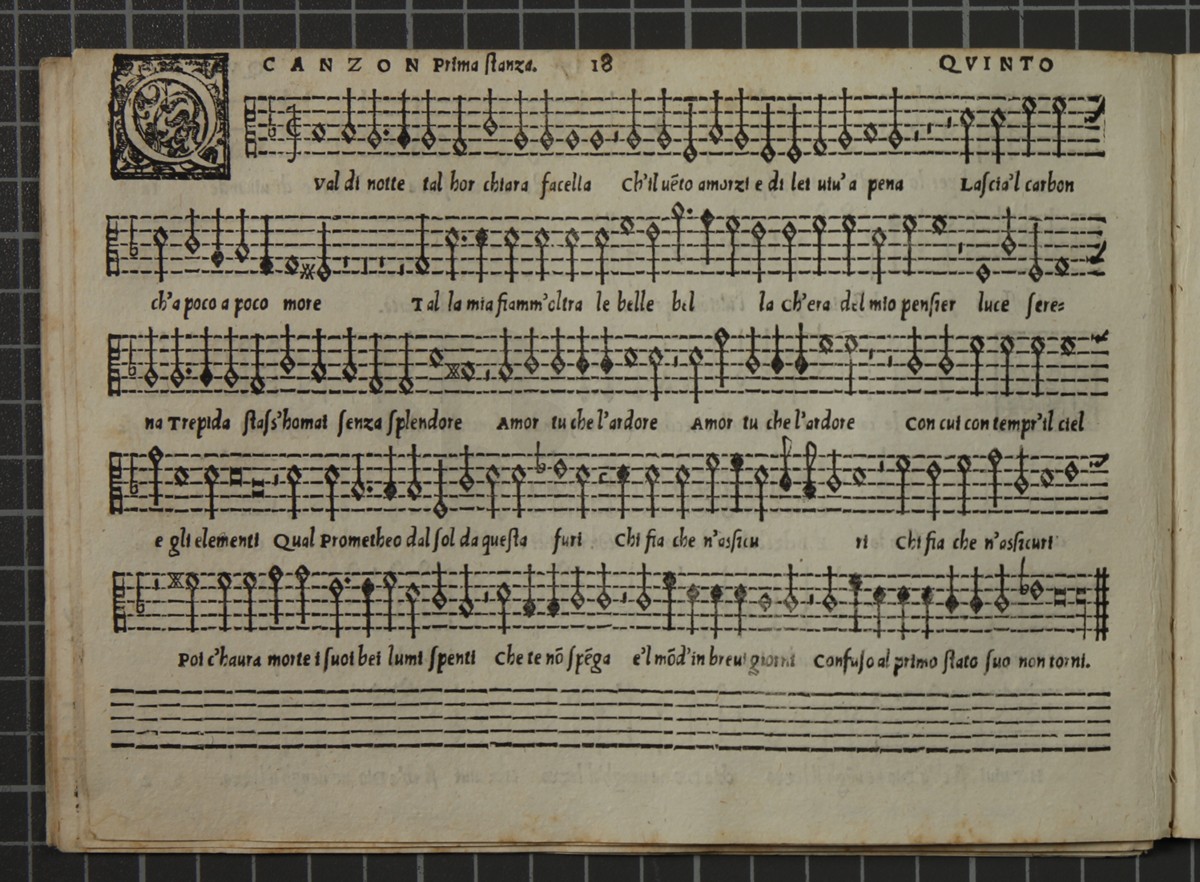 CANZON Prima ſtanza. 18 QVINTO
Q Val di notte tal hor chiara facella Ch'il uẽto amorzi e di lei uiu'a pena Laſcia'l carbon
ch'a poco a poco more Tal la mia fiamm'oltra le belle bel la Ch'era del mio penſier luce ſere=
na Trepida ſtaſs'homai ſenza ſplendore Amor tu che l'ardore Amor tu che l'ardore Con cui con tempr'il ciel
e gli elementi Qual Prometheo dal ſol da queſta furi Chi fia che n'aſsicu ri Chi fia che n'aſsicuri
Poi c'haura morte i ſuoi bei lumi ſpenti Che te nõ ſpẽga e'l mõd'in breui giorni Confuſo al primo ſtato ſuo non torni.